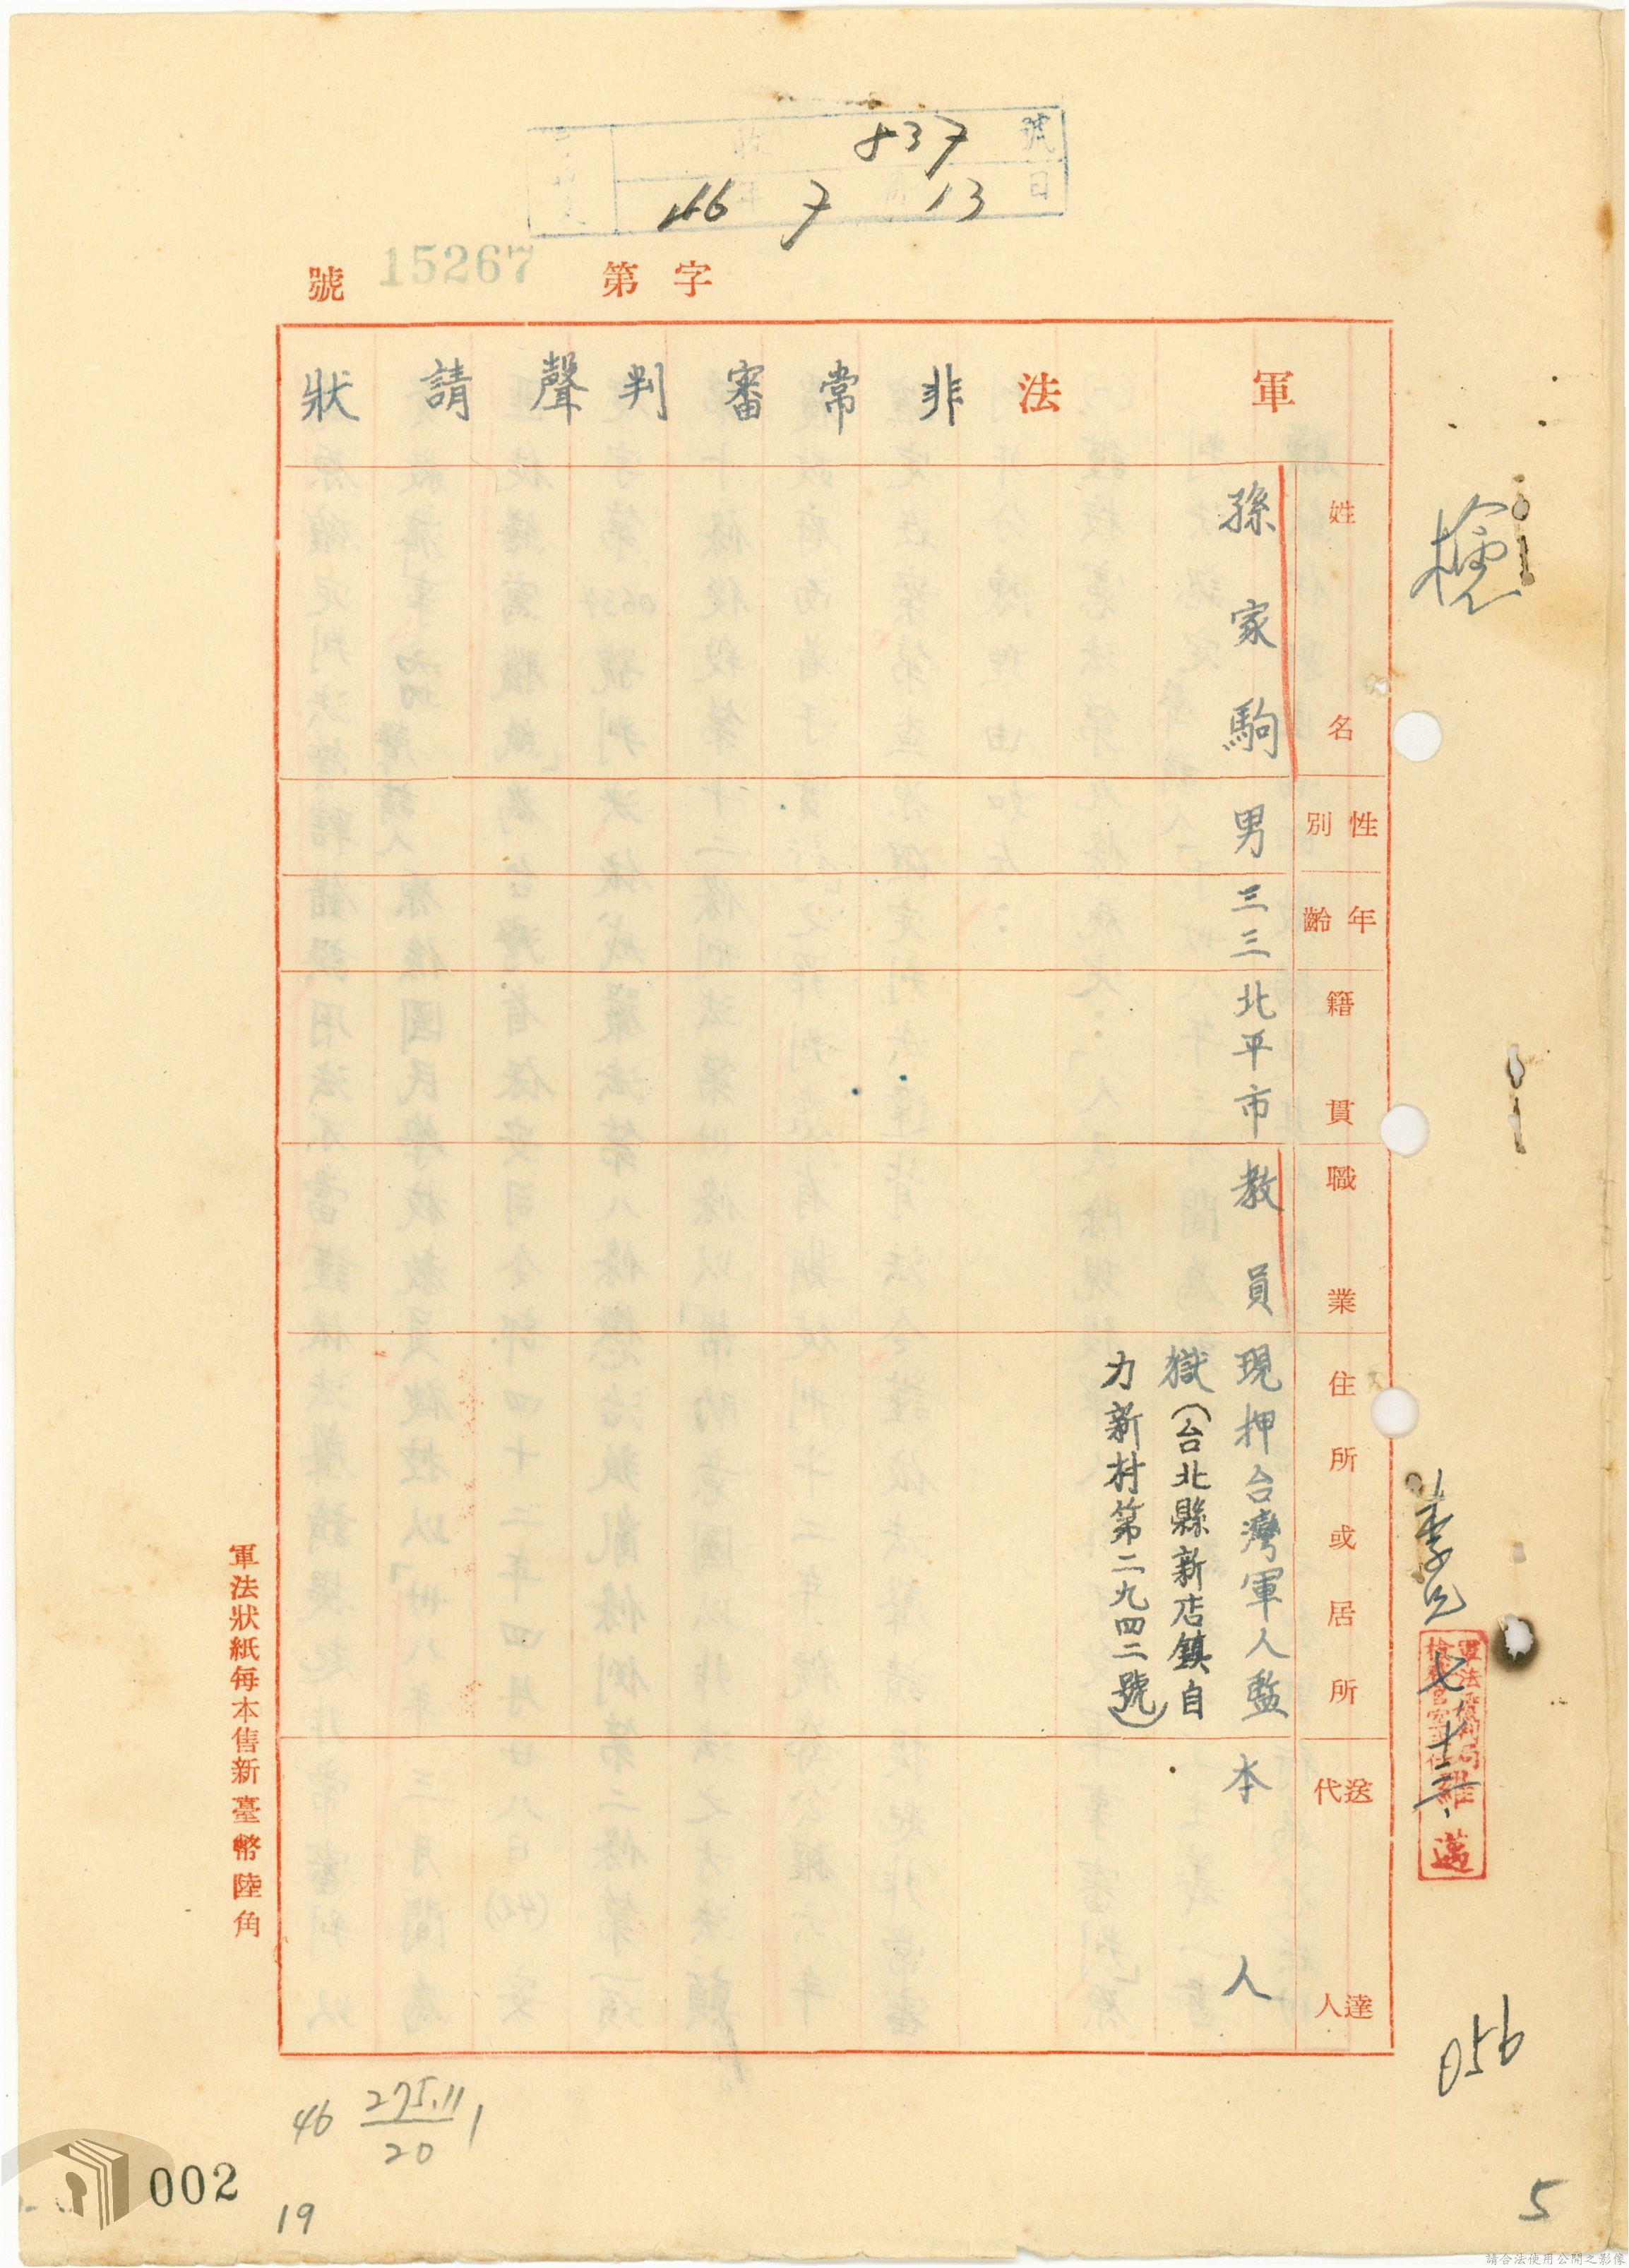 號
837
日
46 7 13
字第15267號
軍法非常審判聲請狀
姓名
孫家駒
性別
男
年齡
三三
籍貫
北平市
職業
教員
住所或居所
現押台灣軍人監
獄(台北縣新店鎮自
力新村第二九四二號)
送達代人
本人
軍法狀紙每本售新臺幣陸角
檢
七、十三、
軍法覆判局
羅邁
056
46 275.11/20 1
19
002
5
請合法使用公開之影像